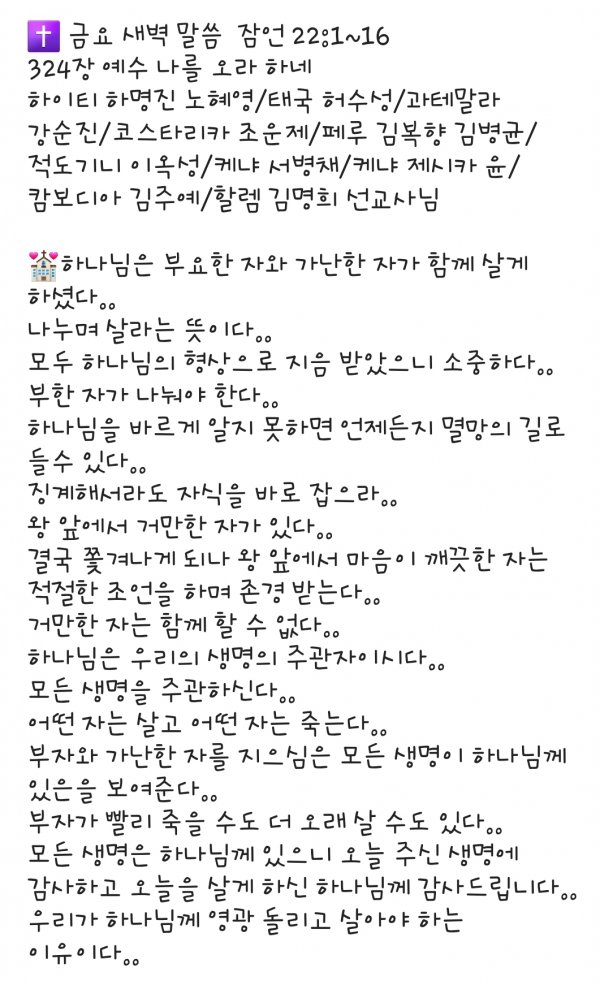 ✝️ 금요 새벽 말씀 잠언 22:1~16
324장 예수 나를 오라 하네
하이티 하명진 노혜영/태국 허수성/과테말라
강순진/코스타리카 조운제/페루 김복향 김병균/
적도기니 이옥성/케냐 서병채/케냐 제시카 윤/
캄보디아 김주예/할렘 김명희 선교사님
💒하나님은 부요한 자와 가난한 자가 함께 살게
하셨다..
나누며 살라는 뜻이다..
모두 하나님의 형상으로 지음 받았으니 소중하다..
부한 자가 나눠야 한다..
하나님을 바르게 알지 못하면 언제든지 멸망의 길로
들수 있다..
징계해서라도 자식을 바로 잡으라..
왕 앞에서 거만한 자가 있다..
결국 쫓겨나게 되나 왕 앞에서 마음이 깨끗한 자는
적절한 조언을 하며 존경 받는다..
거만한 자는 함께 할 수 없다..
하나님은 우리의 생명의 주관자이시다..
모든 생명을 주관하신다..
어떤 자는 살고 어떤 자는 죽는다..
부자와 가난한 자를 지으심은 모든 생명이 하나님께
있은을 보여준다..
부자가 빨리 죽을 수도 더 오래 살 수도 있다..
모든 생명은 하나님께 있으니 오늘 주신 생명에
감사하고 오늘을 살게 하신 하나님께 감사드립니다..
우리가 하나님께 영광 돌리고 살아야 하는
이유이다..